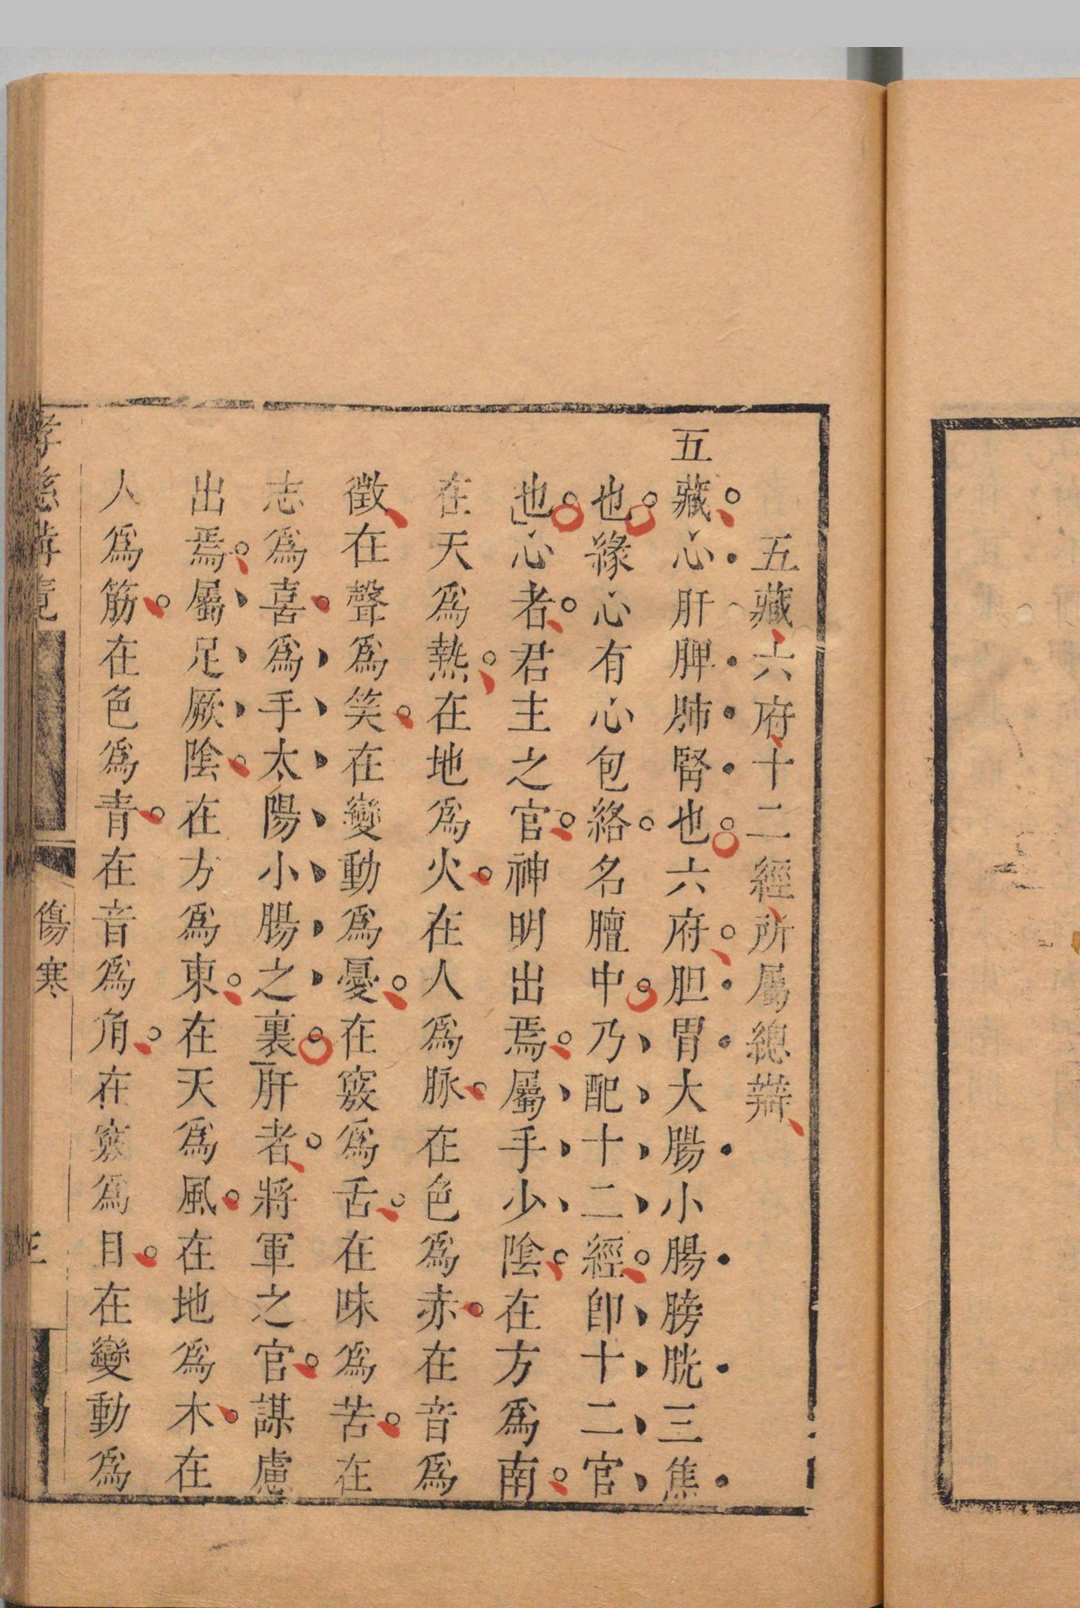 五藏六府十二經所屬總辯
五藏心肝脾肺腎也六府胆胃大腸小腸膀胱三焦
也緣心有心包絡名膻中乃配十二經卽十二官
也心者君主之官神明出焉屬手少陰在方爲南
在天爲熱在地爲火在人爲脉在色爲赤在音爲
徵在聲爲笑在變動爲憂在竅爲舌在味爲苦在
志爲喜爲手太陽小腸之裏肝者將軍之官謀慮
出焉屬足厥陰在方爲東在天爲風在地爲木在
人爲筋在色爲青在音爲角在竅爲目在變動爲
傷寒